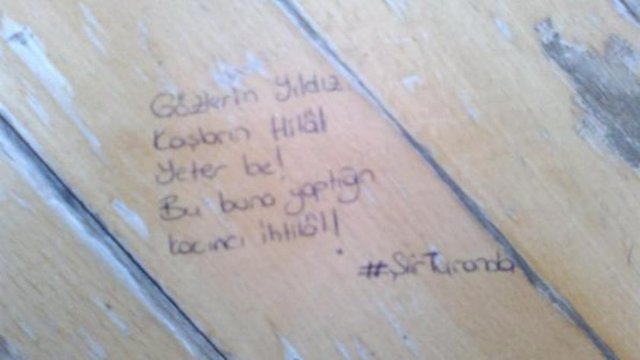 Gözlerin Yıldız
Kaşların Hilâl
Yeter be!
Bu bana yaptığın
kaçıncı ihtilâl!
#ŞiirTuranda